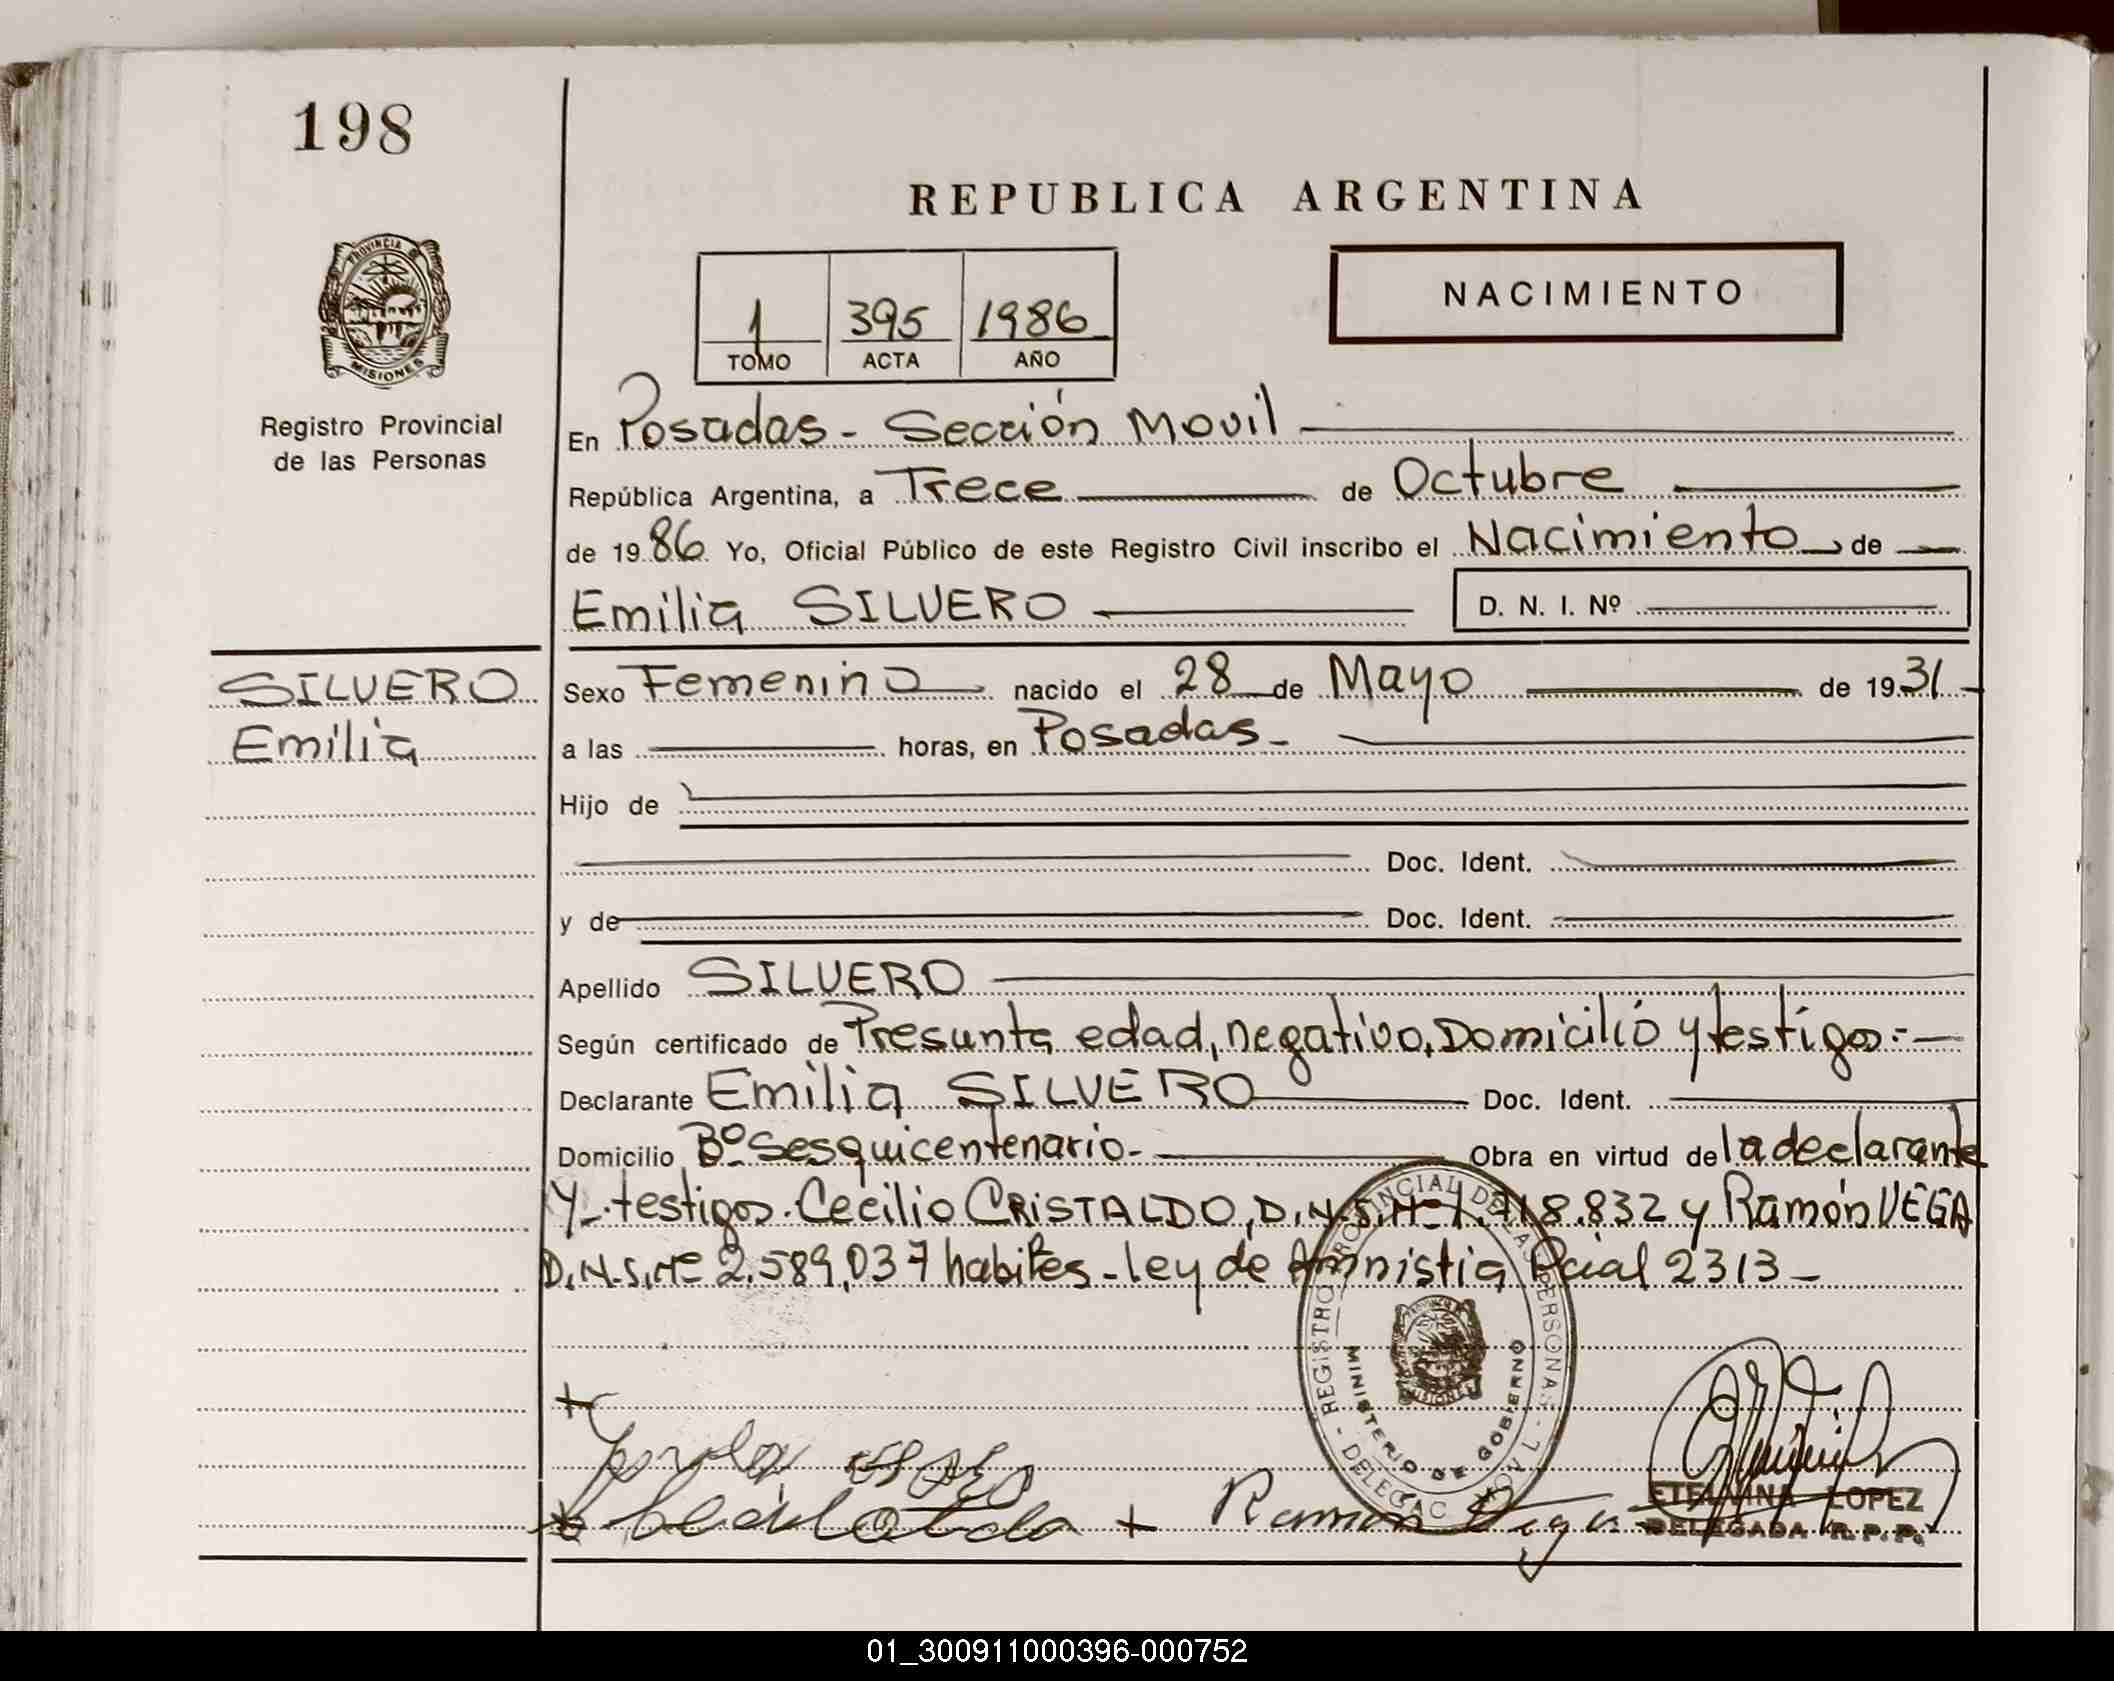 198
REPUBLICA ARGENTINA
PROVINCIA
MISIONES
1 395 1986
TOMO ACTA AÑO
NACIMIENTO
Registro Provincial
de las Personas
En Posadas - Sección Movil
República Argentina, a Trece de Octubre
de 1986 Yo, Oficial Público de este Registro Civil inscribo el Nacimiento de
Emilia SILVERO D. N. I. Nº
SILVERO
Emilia
Sexo Femenino nacido el 28 de Mayo de 1931
a las horas, en Posadas -
Hijo de
Doc. Ident.
y de Doc. Ident.
Apellido SILVERO
Según certificado de Presunta edad, negativo, Domicilio y testigos:-
Declarante Emilia SILVERO Doc. Ident.
Domicilio Bº Sesquicentenario - Obra en virtud de la declarante
y testigos. Cecilio CRISTALDO, 718.832 y Ramón VEGA
2.589,037 - Ley de Amnistia Pcial 2313 -
REGISTRO PROVINCIAL DE LAS PERSONAS - MOVIL - DELEGAC
MINISTERIO DE GOBIERNO
MISIONES
Ramon Vega
ETELVINA LOPEZ
DELEGADA R.P.P.
01_300911000396-000752